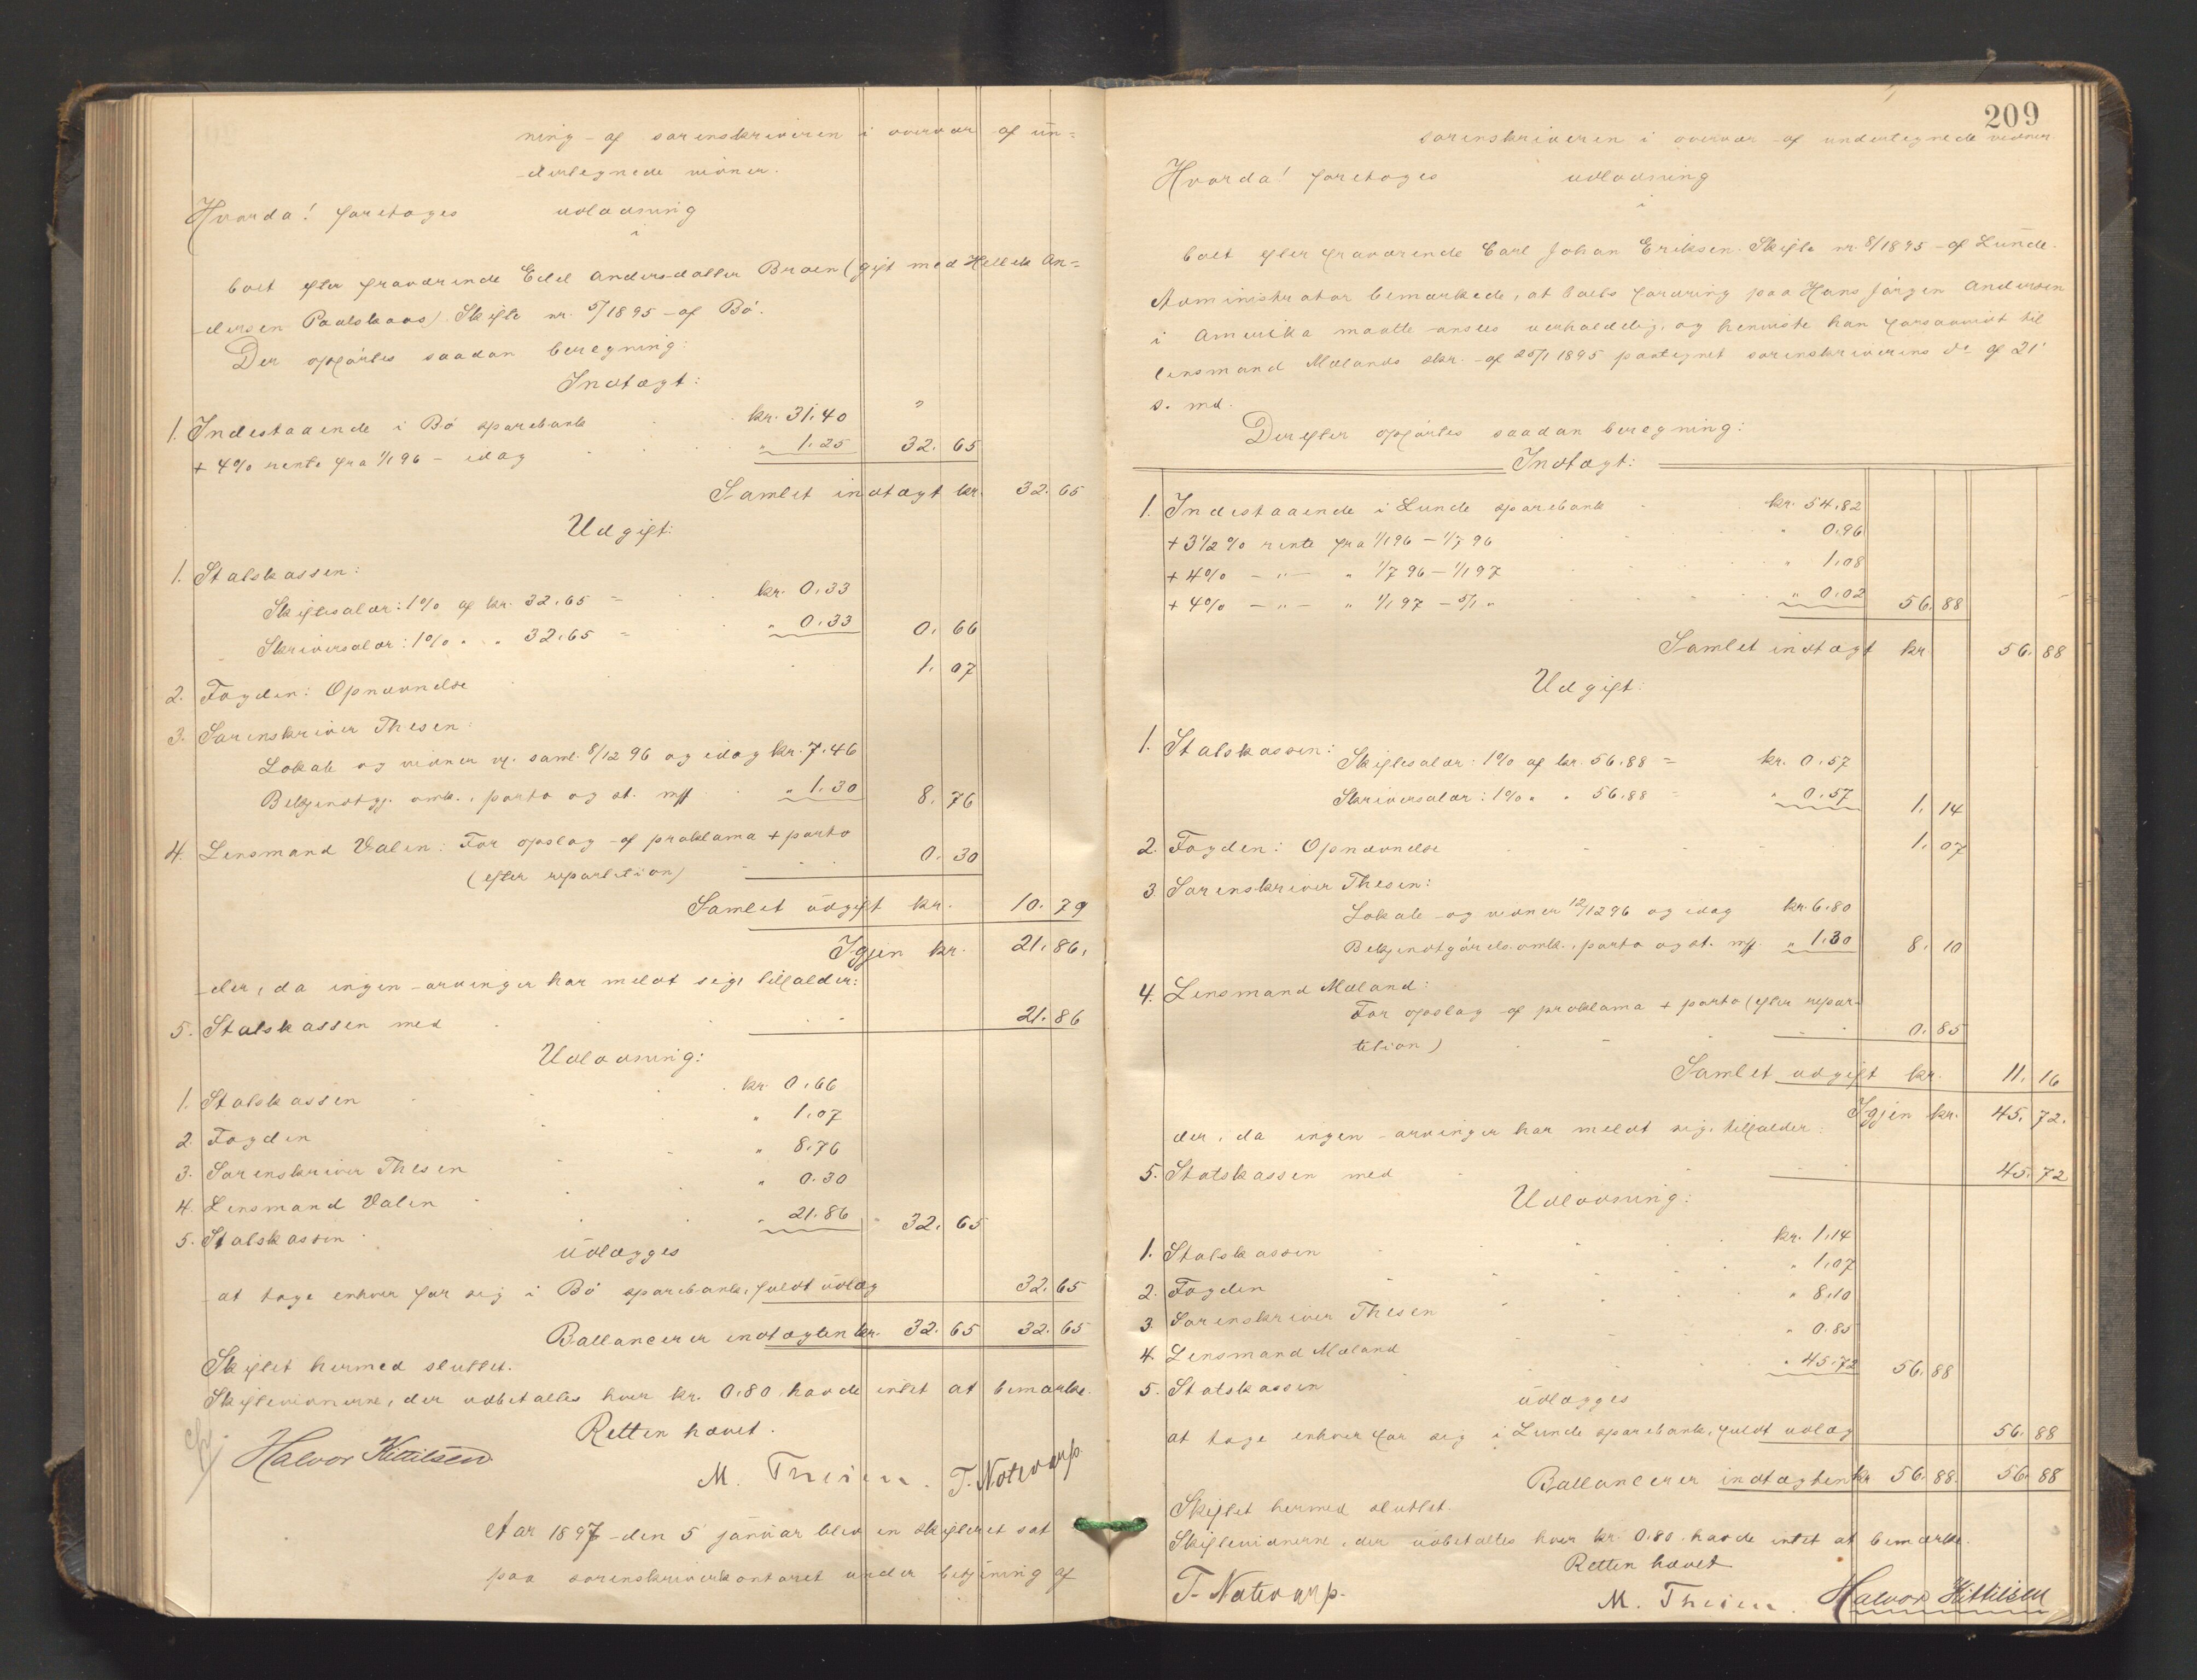 ning af sorenskriveren i overvær af un=
dertegnede vidner.
Hvorda! foretoges udlodning
i
boet efter fraværende Edel Andersdatter Braen (gift med Hellek An=
dersen Paalskaas) Skifte nr. 5/1895 af Bø.
Der opførtes saadan beregning:
Indtægt:
1. Indestaaende i Bø sparebank kr. 31.40 "
+ 4% rente fra 1/1 96 - idag " 1.25 32. 65
Samlet indtægt kr. 32. 65
Udgift:
1. Statskassen:
Skiftesalær: 1% af kr. 32.65 = kr. 0.33
Skriversalær: 1% " " 32.65 = " 0.33 0. 66
2. Fogden: Opnævnelse 1. 07
3. Sorenskriver Thesen:
Lokale og vidner v. saml. 8/12 96 og idag kr. 7.46
Bekjendtgj. omk., porto og st. mff " 1.30 8. 76
4. Lensmand Valen: For opslag af proklama + porto
(efter repartition) 0. 30
Samlet udgift kr. 10. 79
Igjen kr. 21. 86,
der, da ingen arvinger har meldt sig, tilfalder:
5. Statskassen med 21. 86
Udlodning:
1. Statskassen kr. 0.66
2. Fogden " 1.07
3. Sorenskriver Thesen " 8.76
4. Lensmand Valen " 0.30
5. Statskassen " 21.86 " 32. 65
udlægges
at tage enhver for sig i Bø sparebank, fuldt udlæg 32. 65
Ballancerer indtægten kr. 32. 65 32. 65
Skiftet hermed sluttet.
Skiftevidnerne, der udbetaltes hver kr. 0.80 havde intet at bemærke.
Retten hævet.
Halvor Kittilsen M. Thesen. T. Notevarp
Aar 1897 den 5 januar blev en skifteret sat
paa sorenskriverkontoret under betjening af
209
sorenskriveren i overvær af undertegnede vidner
Hvorda! foretoges udlodning
i
boet efter fraværende Carl Johan Eriksen. Skifte nr. 8/1895 af Lunde.
Administrator bemærkede, at boets fordring paa Hans Jørgen Andersen
i Amerika maatte ansees uerholdelig, og henviste han forsaavidt til
lensmand Mælands skr. af 25/1 1895 paategnet sorenskriverens do af 21'
s. md.
Derefter opførtes saadan beregning:
Indtægt:
1. Indestaaende i Lunde sparebank kr. 54.82
+ 3 1/2 % rente fra 1/1 96 - 1/7 96 " 0.96
+ 4% - " - " 1/7 96 - 1/1 97 " 1.08
+ 4% - " - " 1/1 97 - 5/1 " " 0.02 56. 88
Samlet indtægt kr. 56. 88
Udgift:
1. Statskassen:
Skiftesalær: 1% af kr. 56.88 = kr. 0.57
Skriversalær: 1% " " 56.88 = " 0.57 1. 14
2. Fogden: Opnævnelse 1. 07
3. Sorenskriver Thesen:
Lokale og vidner 12/12 96 og idag kr. 6.80
Bekjendtgørels. omk., porto og st. mff. " 1.30 8. 10
4. Lensmand Mæland:
For opslag af proklama + porto (efter repar-
tition) 0. 85
Samlet udgift kr. 11. 16
Igjen kr. 45. 72.
der, da ingen arvinger har meldt sig, tilfalder:
5. Statskassen med 45. 72
Udlodning:
1. Statskassen kr. 1.14
2. Fogden " 1.07
3. Sorenskriver Thesen " 8.10
4. Lensmand Mæland " 0.85
5. Statskassen " 45.72 56. 88
udlægges
at tage enhver for sig i Lunde sparebank, fuldt udlæg 56. 88
Ballancerer indtægten kr 56. 88. 56. 88
Skiftet hermed sluttet.
Skiftevidnerne, der udbetaltes hver kr. 0.80. havde intet at bemærke.
Retten hævet
T. Notevarp. M. Thesen. Halvor Kittilsen